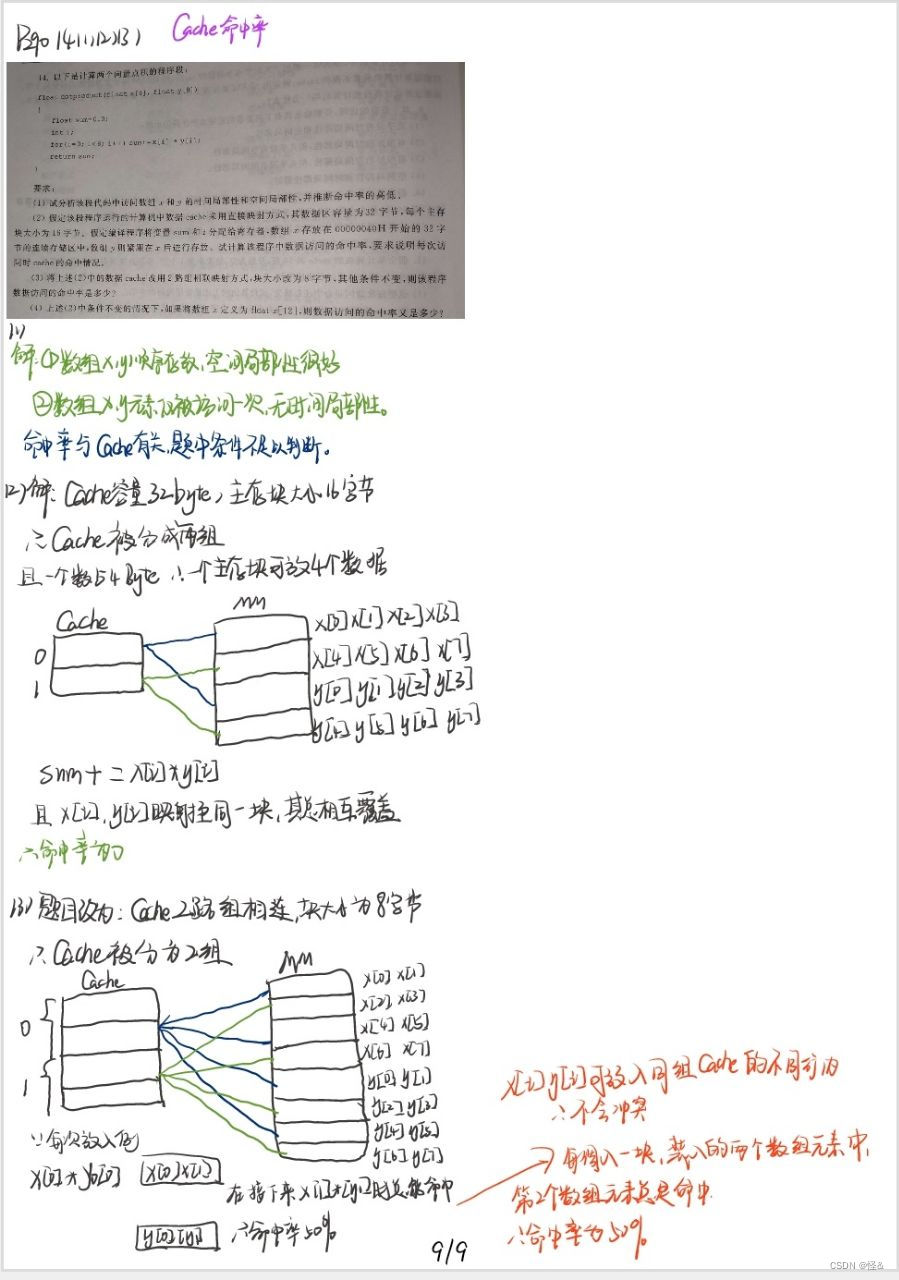 P290 14(1)(2)(3) Cache命中率
14. 以下是计算两个向量点积的程序段:
float dotproduct(float x[8], float y[8])
{
float sum=0.0;
int i;
for(i=0; i<8; i++) sum+=x[i] * y[i];
return sum;
}
要求:
(1) 试分析该段代码中访问数组 x 和 y 的时间局部性和空间局部性,并推断命中率的高低。
(2) 假定该段程序运行的计算机中数据 cache 采用直接映射方式,其数据区容量为 32 字节,每个主存
块大小为 16 字节。假定编译程序将变量 sum 和 i 分配给寄存器,数组 x 存放在 00000040H 开始的 32 字
节的连续存储区中,数组 y 则紧跟在 x 后进行存放。试计算该程序中数据访问的命中率,要求说明每次访
问时 cache 的命中情况。
(3) 将上述(2)中的数据 cache 改用 2 路组相联映射方式,块大小改为 8 字节,其他条件不变,则该程序
数据访问的命中率是多少?
(4) 上述(2)中条件不变的情况下,如果将数组 x 定义为 float x[12],则数据访问的命中率又是多少?
(1)
解:①数组x,y顺序存放,空间局部性很好
②数组x,y元素只被访问一次,无时间局部性。
命中率与Cache有关,题中条件不足以判断。
(2)解:Cache容量32byte,主存块大小16字节
∴Cache被分成两组
且一个数占4Byte ∴一个主存块可放4个数据
Cache
MM
x[0] x[1] x[2] x[3]
0
x[4] x[5] x[6] x[7]
1
y[0] y[1] y[2] y[3]
y[4] y[5] y[6] y[7]
sum+=x[i]*y[i]
且x[i],y[i]映射在同一块,其总相互覆盖
∴命中率为0
(3)题目改为:Cache2路组相连,块大小为8字节
∴Cache被分为2组
Cache
MM
x[0] x[1]
x[2] x[3]
0
x[4] x[5]
x[6] x[7]
1
y[0] y[1]
y[2] y[3]
y[4] y[5]
y[6] y[7]
x[i] y[i]可放入同组Cache的不同行内
∴不会冲突
∵每次放入
x[0]*y[0]
x[0] x[1]
在接下来x[1]*y[1]时总能命中
→每调入一块,装入的两个数组元素中,
第2个数组元素总是命中
y[0] y[1]
∴命中率50%
∴命中率为50%
9/9
CSDN @怪&